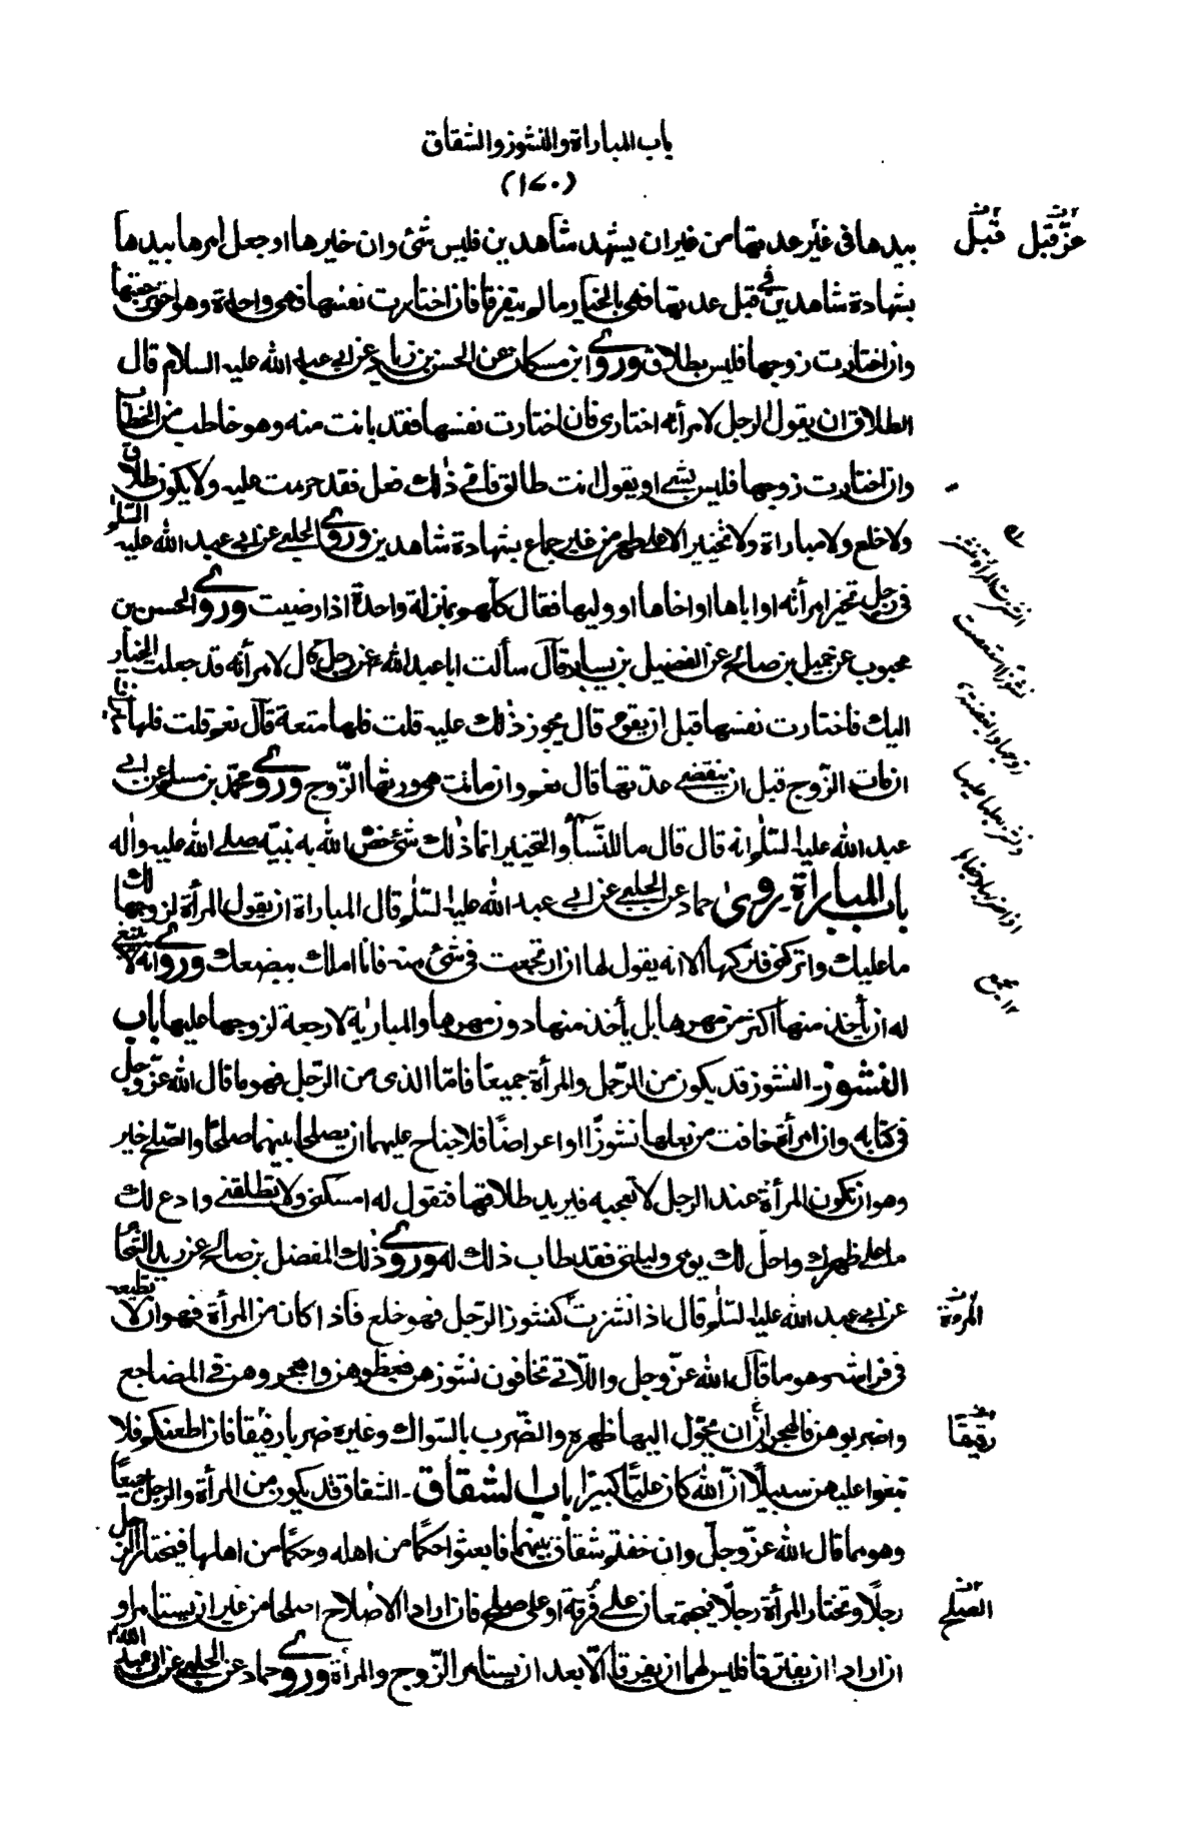 باب المباراة والنشوز والشقاق
(١٧٠)
بيدها فى غير عدتها من غير ان يشهد شاهدين فليس شئ وان خيرها او جعل امرها بيدها
بشهادة شاهدين فى قبل عدتها فهى بالخيار ما لم يتفرقا فان اختارت نفسها فهى واحدة وهو احق برجعتها
وان اختارت زوجها فليس بطلاق وروى ابن مسكان عن الحسن بن زياد عن ابى عبد الله عليه السلام قال
الطلاق ان يقول الرجل لامرأته اختارى فان اختارت نفسها فقد بانت منه وهو خاطب من الخطاب
وان اختارت زوجها فليس بشئ او يقول انت طالق فاى ذلك فعل فقد حرمت عليه ولا يكون طلاق
ولا خلع ولا مباراة ولا تخيير الا على طهر من غير جماع بشهادة شاهدين وروى الحلبى عن ابى عبد الله عليه السلم
فى رجل تخير امرأته او اباها او اخاها او وليها فقال كلهم بمنزلة واحدة اذا رضيت وروى الحسن بن
محبوب عن جميل بن صالح عن الفضيل بن يسار قال سألت ابا عبد الله ع عن رجل قال لامرأته قد جعلت الخيار
اليك فاختارت نفسها قبل ان يقوم قال يجوز ذلك عليه قلت فلها متعة قال نعم قلت فلها
ان مات الزوج قبل ان ينقضى عدتها قال نعم وان ماتت هى ورثها الزوج وروى محمد بن مسلم عن ابى
عبد الله عليه السلم انه قال قال ما للنساء والتخيير انما ذلك شئ خص الله به نبيه صلى الله عليه واله
باب المباراة ـ روى حماد عن الحلبى عن ابى عبد الله عليه السلم قال المباراة ان يقول المرأة لزوجها لك
ما عليك واتركنى فتركها الا انه يقول لها ان ارتجعت فى شئ منه فانا املك ببضعك وروى انه لا ينبغى
له ان يأخذ منها اكثر من مهرها بل يأخذ منها دون مهرها والمبارئة لا رجعة لزوجها عليها باب
النشوز ـ النشوز قد يكون من الرجل والمرأة جميعا فاما الذى من الرجل فهو ما قال الله عزّ وجلّ
فى كتابه وان امرأة خافت من بعلها نشوزًا او اعراضًا فلا جناح عليهما ان يصلحا بينهما صلحًا والصلح خير
وهو ان تكون المرأة عند الرجل لا تعجبه فيريد طلاقها فتقول له امسكنى ولا تطلقنى وادع لك
ما على ظهرك واحل لك يومى وليلتى فقد طاب ذلك له وروى ذلك المفضل بن صالح عن زيد الشحام
عن ابى عبد الله عليه السلم قال اذا نشزت كنشوز الرجل فهو خلع فاذا كان من المرأة فهو ان لا تطيعه
فى فراشه وهو ما قال الله عزّ وجل واللاتى تخافون نشوزهن فعظوهن واهجروهن فى المضاجع
واضربوهن فالهجران ان يحوّل اليها ظهره والضرب بالسواك وغيره ضربا رفيقا فان اطعنكم فلا
تبغوا عليهن سبيلًا ان الله كان عليًّا كبيرًا باب الشقاق ـ الشقاق قد يكون من المرأة والرجل جميعًا
وهو مما قال الله عزّ وجلّ وان خفتم شقاق بينهما فابعثوا حكمًا من اهله وحكمًا من اهلها فيختار الرجل
رجلًا وتختار المرأة رجلًا فيجتمعان على فرقة او على صلح فان ارادا الاصلاح اصلحا من غير ان يستامرا و
ان ارادا ان يفترقا فليس لهما ان يفرقا الا بعد ان يستامرا الزوج والمرأة وروى حماد عن الحلبى عن ابى عبد الله
عن قبل قبل
نشزت المرأة تنشز
المروة
رقيقا
الصلح